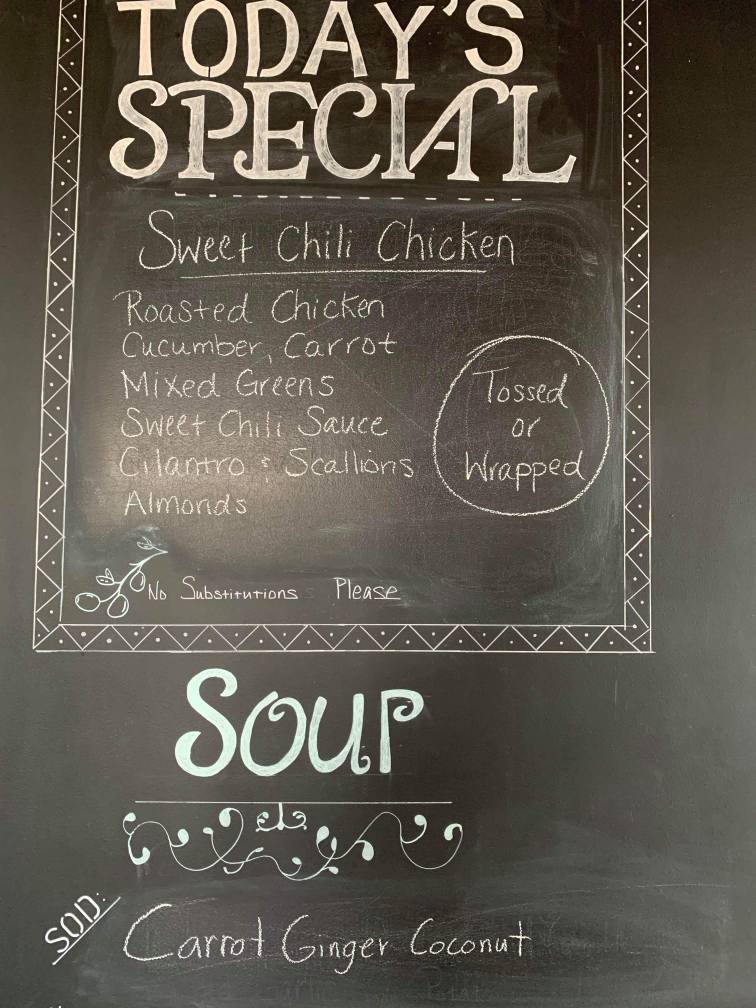 TODAY'S
SPECIAL
Sweet Chili Chicken
Roasted Chicken
Cucumber, Carrot
Mixed Greens
Sweet Chili Sauce
Cilantro & Scallions
Almonds
Tossed
or
Wrapped
No Substitutions Please
Soup
SOD:
Carrot Ginger Coconut